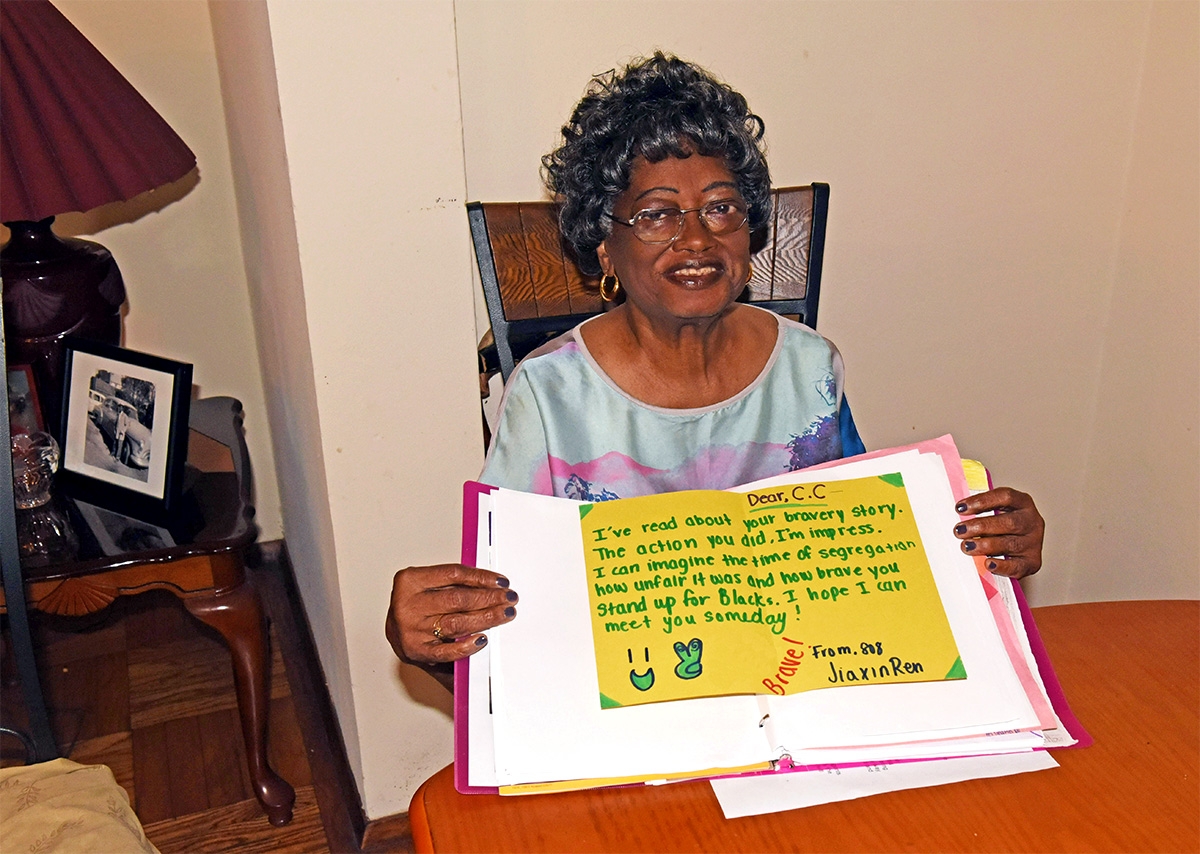 Dear, C.C
I've read about your bravery story.
The action you did, I'm impress.
I can imagine the time of segregation
how unfair it was and how brave you
stand up for Blacks. I hope I can
meet you someday!
Brave!
From. 808
Jiaxin Ren